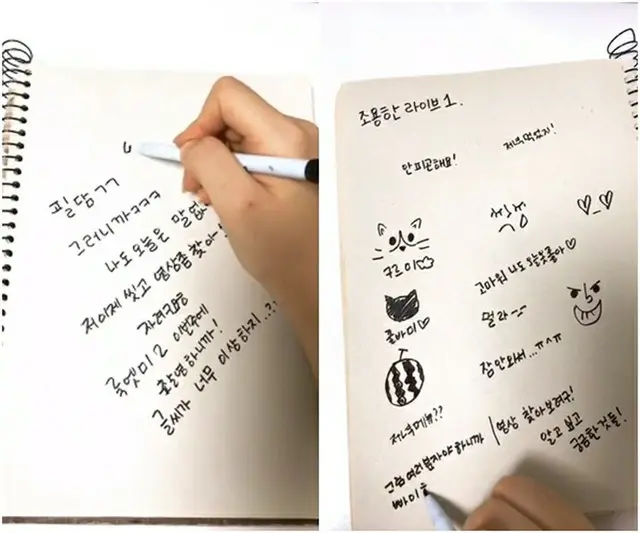 필담ㄱㄱ
그러니까ㅋㅋㅋ
나도 오늘은 말없
저 이제 씻고 영상좀 찾아
자려구용
룩엣미 2 이번주에
촬영 하니까!
글씨가 너무 이상하지..?!
조용한 라이브 1.
저녁 먹었지!
안피곤해요!
구르미
고마워 나도 오늘옷좋아♡
쫄바미♡
멀라
잠 안와서...ㅠㅅㅠ
저녁메뉴??
영상 찾아보려구!
알고 보고
궁금한 것들!
그럼 여러분 자야 하니까
빠이